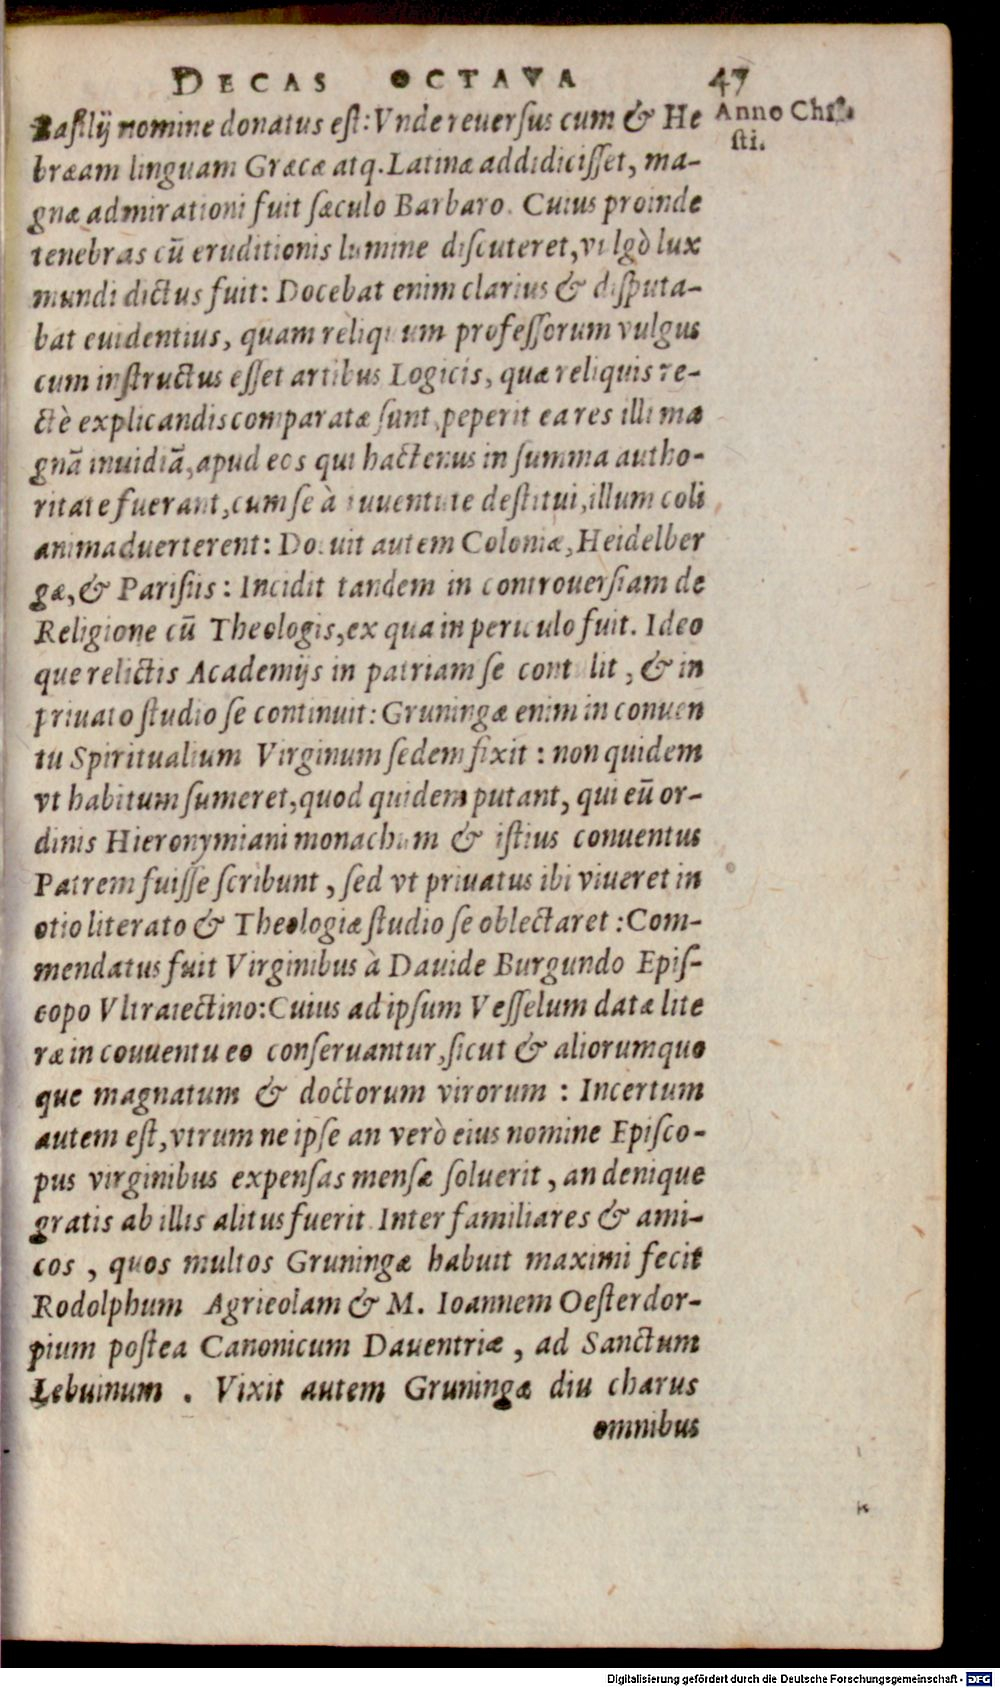 DECAS OCTAVA 47
Anno Chri
sti.
Basilij nomine donatus est: Vnde reuersus cum & He
bræam linguam Græcæ atq. Latinæ addidicisset, ma-
gnæ admirationi fuit sæculo Barbaro. Cuius proinde
tenebras cū eruditionis lumine discuteret, vulgò lux
mundi dictus fuit: Docebat enim clarius & disputa-
bat euidentius, quam reliquum professorum vulgus
cum instructus esset artibus Logicis, quæ reliquis re-
ctè explicandis comparatæ sunt, peperit ea res illi ma
gnā inuidiā, apud eos qui hactenus in summa autho-
ritate fuerant, cum se à iuuentute destitui, illum coli
animaduerterent: Docuit autem Coloniæ, Heidelber
gæ, & Parisiis: Incidit tandem in controuersiam de
Religione cū Theologis, ex qua in periculo fuit. Ideo
que relictis Academijs in patriam se contulit, & in
priuato studio se continuit: Gruningæ enim in conuen
tu Spiritualium Virginum sedem fixit: non quidem
vt habitum sumeret, quod quidem putant, qui eū or-
dinis Hieronymiani monachum & istius conuentus
Patrem fuisse scribunt, sed vt priuatus ibi viueret in
otio literato & Theologiæ studio se oblectaret: Com-
mendatus fuit Virginibus à Dauide Burgundo Epis-
copo Vltraiectino: Cuius ad ipsum Vesselum datæ lite
ræ in couuentu eo conseruantur, sicut & aliorumquo
que magnatum & doctorum virorum: Incertum
autem est, vtrum ne ipse an verò eius nomine Episco-
pus virginibus expensas mensæ soluerit, an denique
gratis ab illis alitus fuerit. Inter familiares & ami-
cos, quos multos Gruningæ habuit maximi fecit
Rodolphum Agrieolam & M. Ioannem Oesterdor-
pium postea Canonicum Dauentriæ, ad Sanctum
Lebuinum. Vixit autem Gruningæ diu charus
omnibus
Digitalisierung gefördert durch die Deutsche Forschungsgemeinschaft - DFG